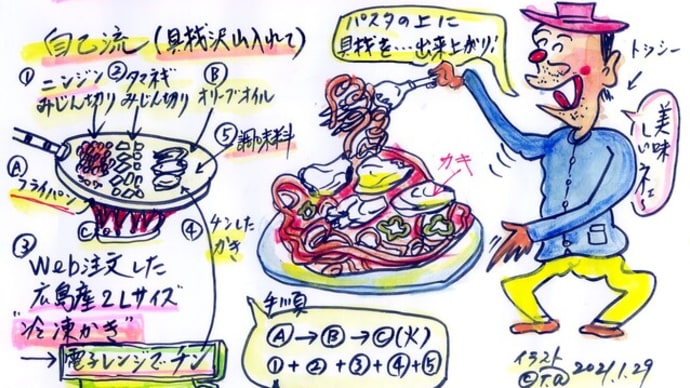 自己流(具材沢山入れて)
①ニンジン
みじん切り
②タマネギ
みじん切り
Ⓑ
オリーブオイル
⑤調味料
Ⓐ
フライパン
Ⓒ
④
チンした
かき
③
Web注文した
広島産2Lサイズ
"冷凍かき"
→電子レンジでチン
パスタの上に
具材を…出来上がり!
トッシー
美味
しいネェ
カキ
手順
Ⓐ→Ⓑ→Ⓒ(火)
①+②+③+④+⑤
イラスト
©T.a 2021.1.29